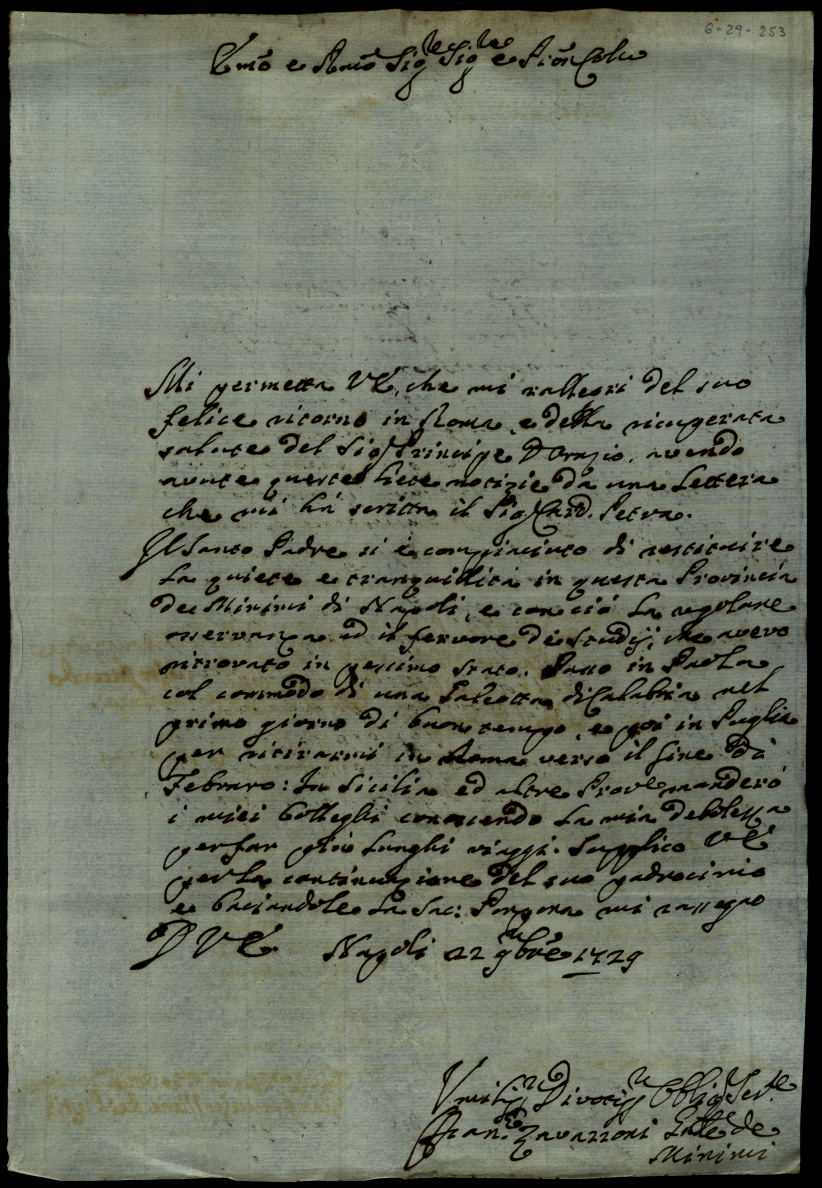 6-29-253
Emō e Rmō Sigre Sigre e Pron Colmo
Mi permetta V E, che mi rallegri del suo
felice ritorno in Roma, e della ricuperata
salute del Sigr Principe D Orazio, avendo
avute queste liete notizie da una Lettera
che mi há scritta il Sigr Card. Petra.
Il Santo Padre si è compiaciuto di restituire
la quiete e tranquillità in questa Provincia
de Minimi di Napoli, e con ció la regolare
osservanza ed il fervore de Studij, che avevo
ritrovato in pessimo stato. Passo in Paola
col commodo di una Falcotta di Calabria nel
primo giorno di buon tempo, e poi in Puglia
per ritirarmi in Roma verso il fine di
Febraro: In Sicilia ed altre Prove manderó
i miei Colleghi conoscendo la mia debolezza
per far piú lunghi viaggi. Supplico V E
per la continuazione del suo padrocinio
e baciandole la Sac: Porpora mi rassegno
D V E Napoli 22 9bre 1729
Umiliss Divotiss Obbligs Serre
Fran. Zavarroni Gnle de
Minimi